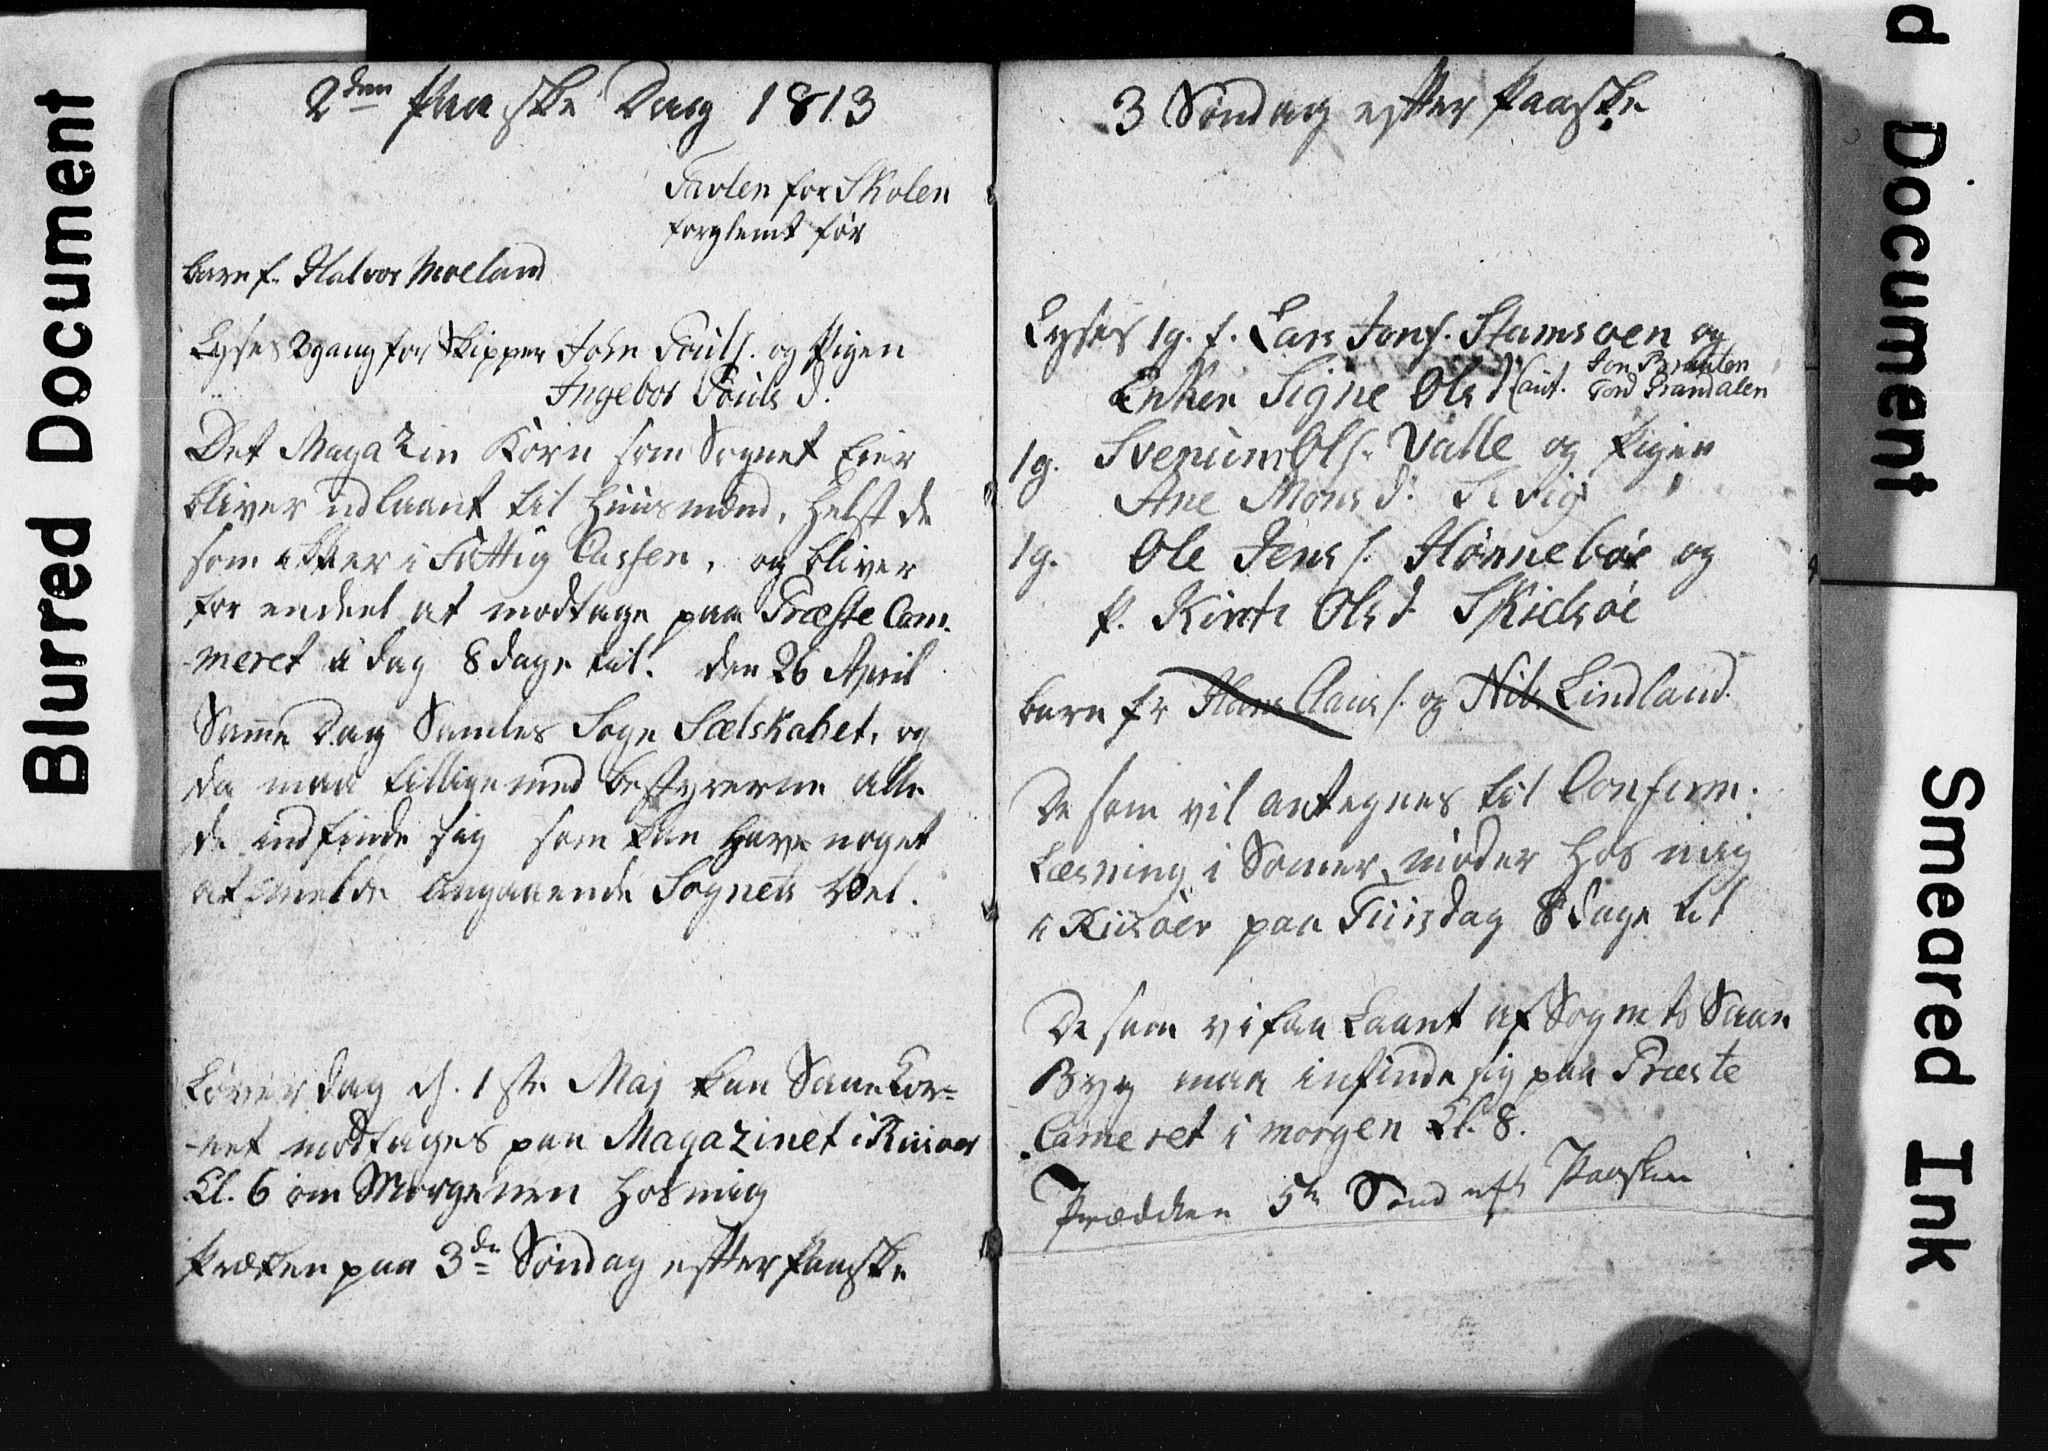 2den Paaske Dag 1813
Tavlen for Skolen
forglemt før
barn f. Halvor Moeland
Lyses 2 gang for Skipper John Pouls. og Pigen
Ingebor Pouls d.
Det Magazin Korn som Sognet Eier
bliver udlaant til Huusmænd, helst de
som ikke er i Fattig Cassen, og bliver
for endeel at modtage paa Præste Cam-
-meret i dag 8 dage til. den 26 April
Samme Dag Samles Sogne Sælskabet, og
da maa tillige med bestyrerne alle
de indfinde sig som kan have noget
at melde angaaende Sognets vel.
Løverdag d. 1ste Maj kan Saae Kor=
-net modtages paa Magazinet i Riisøer
Kl. 6 om Morgenen hos mig
Præken paa 3de Søndag efter Paaske
3 Søndag efter Paaske
Lyses 1g. f. Lars Jons. Stamsoen og
Enken Signe Ols d. Caut. Jon Brauten
Tord Grandalen
1g. Svenum Ols. Valle og Pigen
Ane Mons d. Sevig
1g. Ole Jens s. Hønnebøe og
P. Kirsti Ols d. Skielsøe
barn fr Hans Claus s. og Nils Lindland.
De som vil antegnes til Confirm.
Læsning i Somer, møder hos mig
i Riisøer paa Tiirsdag 8 dage til
De som vi faa Laant af Sognets Saae
Byg maa infinde sig paa Præste
Cameret i morgen Kl. 8.
Prædken 5te Sønd eft Paasken
Blurred Document
d Document
Smeared Ink